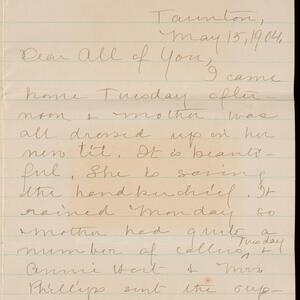 Taunton,
May 15, 1904.
Dear All of You,
I came
home Tuesday after
noon & Mother was
all dressed up on her
new tie. It is beauti-
ful. She is saving
the handkerchief. It
rained Monday so
Mother had quite a
number of callers Tuesday
Annie Hert & Mrs
Phillips sent the cup-